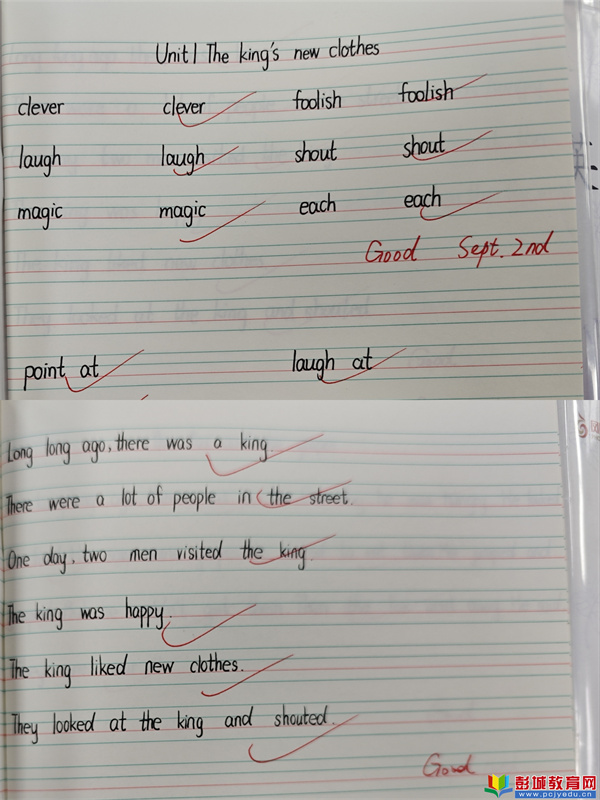 Unit 1 The king's new clothes
clever clever foolish foolish
laugh laugh shout shout
magic magic each each
Good Sept. 2nd
point at laugh at
Long long ago, there was a king.
There were a lot of people in the street.
One day, two men visited the king
The king was happy.
The king liked new clothes.
They looked at the king and shouted.
Good
彭城教育网
www.pcjyedu.cn